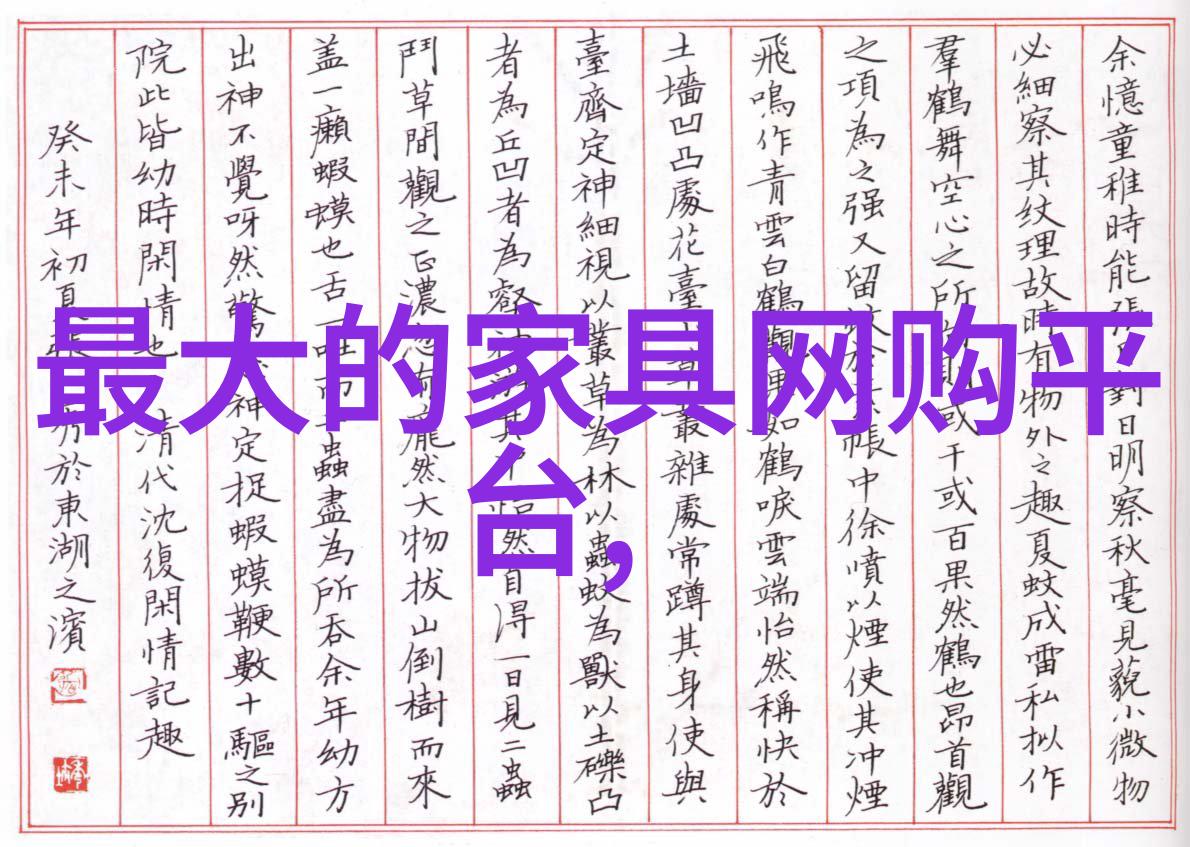 最大的家具网购平
台,
余憶童稚時能張對日明察秋毫見藐小微物
必細察其紋理故時有物外之趣夏蚊成雷私拟作
羣鶴舞空心之所則或千或百果然鶴也昂首觀
之項為之强又留蚊於帳中徐噴以煙使其冲煙
飛鳴作青雲白鶴觀果如鶴唳雲端怡然稱快於
土墻凹凸處花臺草叢雜處常蹲其身使與
臺齊定神細視以叢草為林以蟲蚊為獸以土礫凸
者為丘凹者為壑神其中怡然自得一日見二蟲
鬥草間觀之正濃忽有龐然大物拔山倒樹而來
盖一癩蝦蟆也舌一吐而二蟲盡為所吞余年幼方
出神不覺呀然驚神定捉蝦蟆鞭數十驅之别
院此皆幼時閑情也 清代沈復閑情記趣
癸未年初夏張於東湖之濱